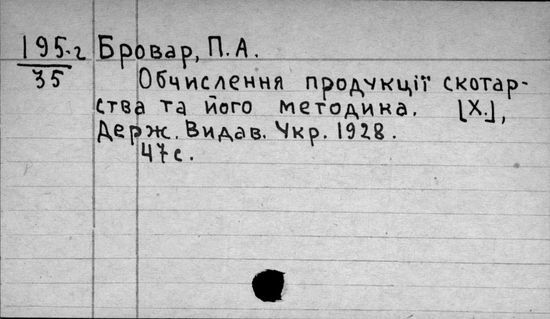 195-г Бровар, П. А.
35
Обчислення продукції скотар-
ства та його методика. [Х.],
Держ. Видав. Укр. 1928.
47 с.